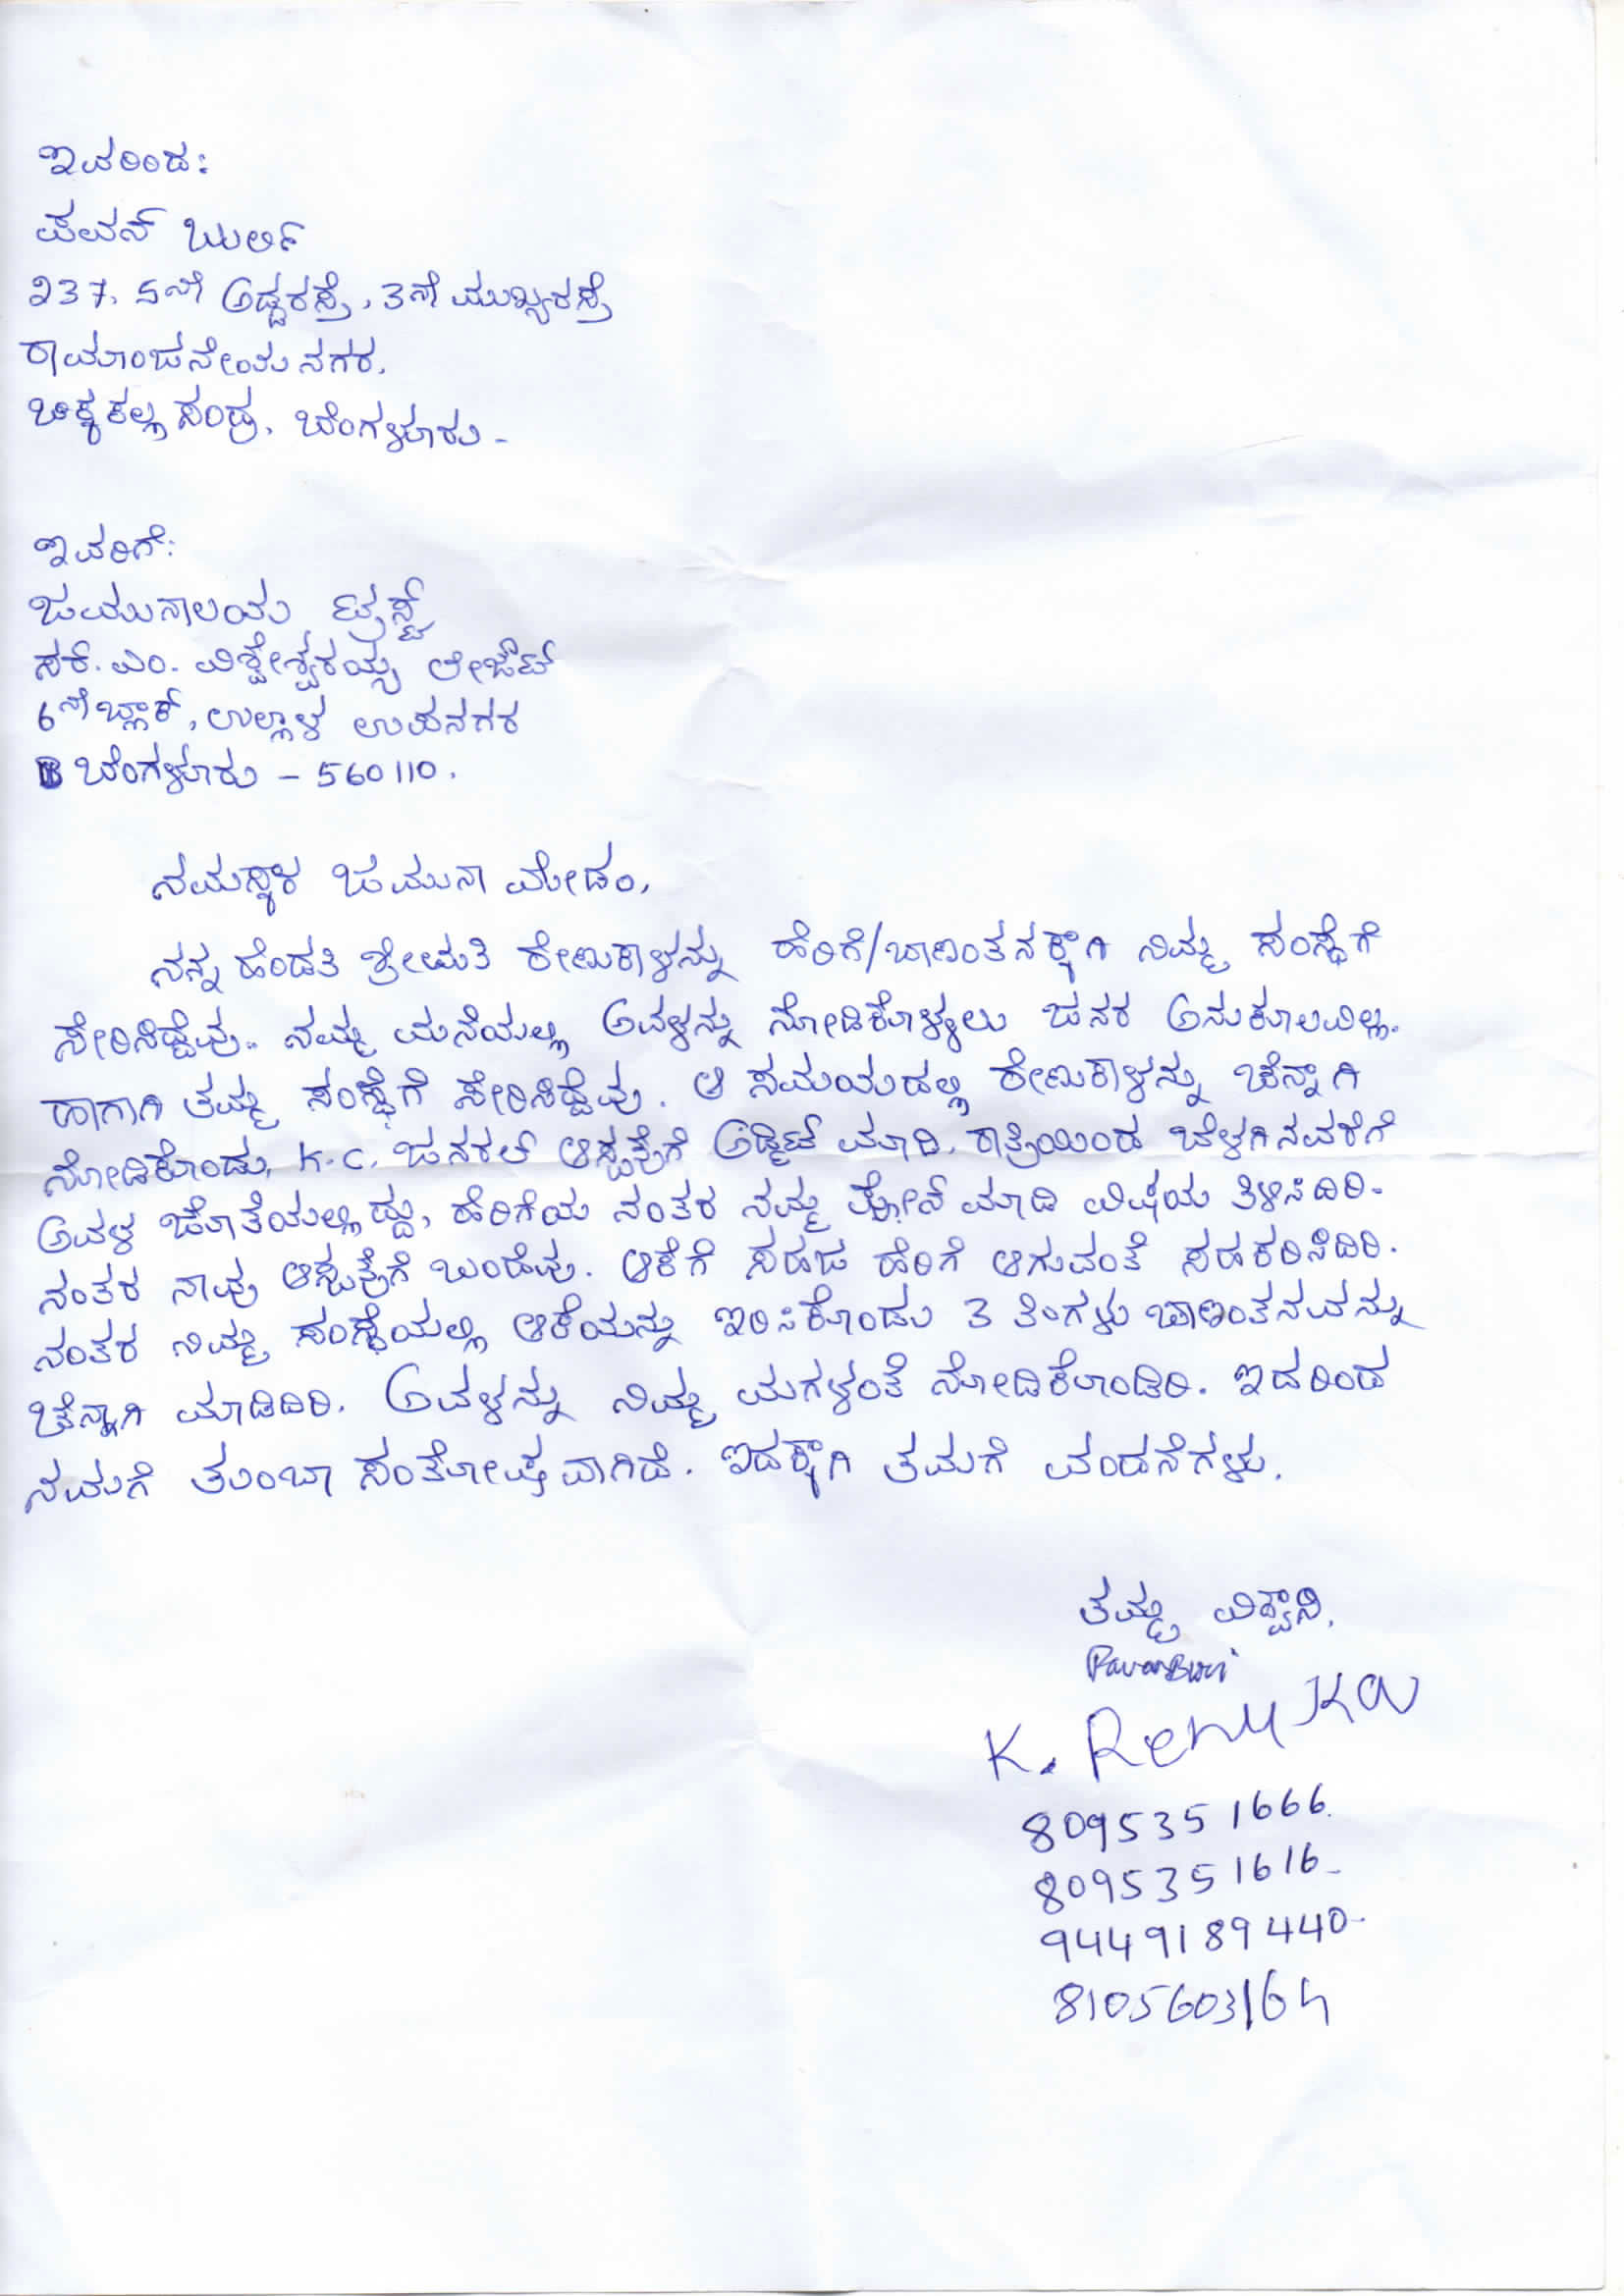 ಇವರಿಂದ:
ಪವನ್ ಬುರ್ಲಿ
237, 5ನೇ ಅಡ್ಡರಸ್ತೆ, 3ನೇ ಮುಖ್ಯರಸ್ತೆ
ರಾಮಾಂಜನೇಯ ನಗರ,
ಚಿಕ್ಕಕಲ್ಲಸಂದ್ರ, ಬೆಂಗಳೂರು -
ಇವರಿಗೆ:
ಜಮುನಾಲಯ ಟ್ರಸ್ಟ್
ಸರ್. ಎಂ. ವಿಶ್ವೇಶ್ವರಯ್ಯ ಲೇಔಟ್
6ನೇ ಬ್ಲಾಕ್, ಉಲ್ಲಾಳ ಉಪನಗರ
ಬೆಂಗಳೂರು - 560110.
ನಮಸ್ಕಾರ ಜಮುನಾ ಮೇಡಂ,
ನನ್ನ ಹೆಂಡತಿ ಶ್ರೀಮತಿ ರೇಣುಕಾಳನ್ನು ಹೆರಿಗೆ/ಬಾಣಂತನಕ್ಕಾಗಿ ನಿಮ್ಮ ಸಂಸ್ಥೆಗೆ
ಸೇರಿಸಿದ್ದೆವು. ನಮ್ಮ ಮನೆಯಲ್ಲಿ ಅವಳನ್ನು ನೋಡಿಕೊಳ್ಳಲು ಜನರ ಅನುಕೂಲವಿಲ್ಲ.
ಹಾಗಾಗಿ ತಮ್ಮ ಸಂಸ್ಥೆಗೆ ಸೇರಿಸಿದ್ದೆವು. ಆ ಸಮಯದಲ್ಲಿ ರೇಣುಕಾಳನ್ನು ಚೆನ್ನಾಗಿ
ನೋಡಿಕೊಂಡು, K.C. ಜನರಲ್ ಆಸ್ಪತ್ರೆಗೆ ಅಡ್ಮಿಟ್ ಮಾಡಿ, ರಾತ್ರಿಯಿಂದ ಬೆಳಗಿನವರೆಗೆ
ಅವಳ ಜೊತೆಯಲ್ಲಿದ್ದು, ಹೆರಿಗೆಯ ನಂತರ ನಮ್ಮ ಫೋನ್ ಮಾಡಿ ವಿಷಯ ತಿಳಿಸಿದಿರಿ.
ನಂತರ ನಾವು ಆಸ್ಪತ್ರೆಗೆ ಬಂದೆವು. ಆಕೆಗೆ ಸಹಜ ಹೆರಿಗೆ ಆಗುವಂತೆ ಸಹಕರಿಸಿದಿರಿ.
ನಂತರ ನಿಮ್ಮ ಸಂಸ್ಥೆಯಲ್ಲಿ ಆಕೆಯನ್ನು ಇರಿಸಿಕೊಂಡು 3 ತಿಂಗಳು ಬಾಣಂತನವನ್ನು
ಚೆನ್ನಾಗಿ ಮಾಡಿದಿರಿ. ಅವಳನ್ನು ನಿಮ್ಮ ಮಗಳಂತೆ ನೋಡಿಕೊಂಡಿರಿ. ಇದರಿಂದ
ನಮಗೆ ತುಂಬಾ ಸಂತೋಷವಾಗಿದೆ. ಇದಕ್ಕಾಗಿ ತಮಗೆ ವಂದನೆಗಳು.
ತಮ್ಮ ವಿಶ್ವಾಸಿ,
PavanBurli
K. Renuka
8095351666.
8095351616-
9449189440-
8105603164